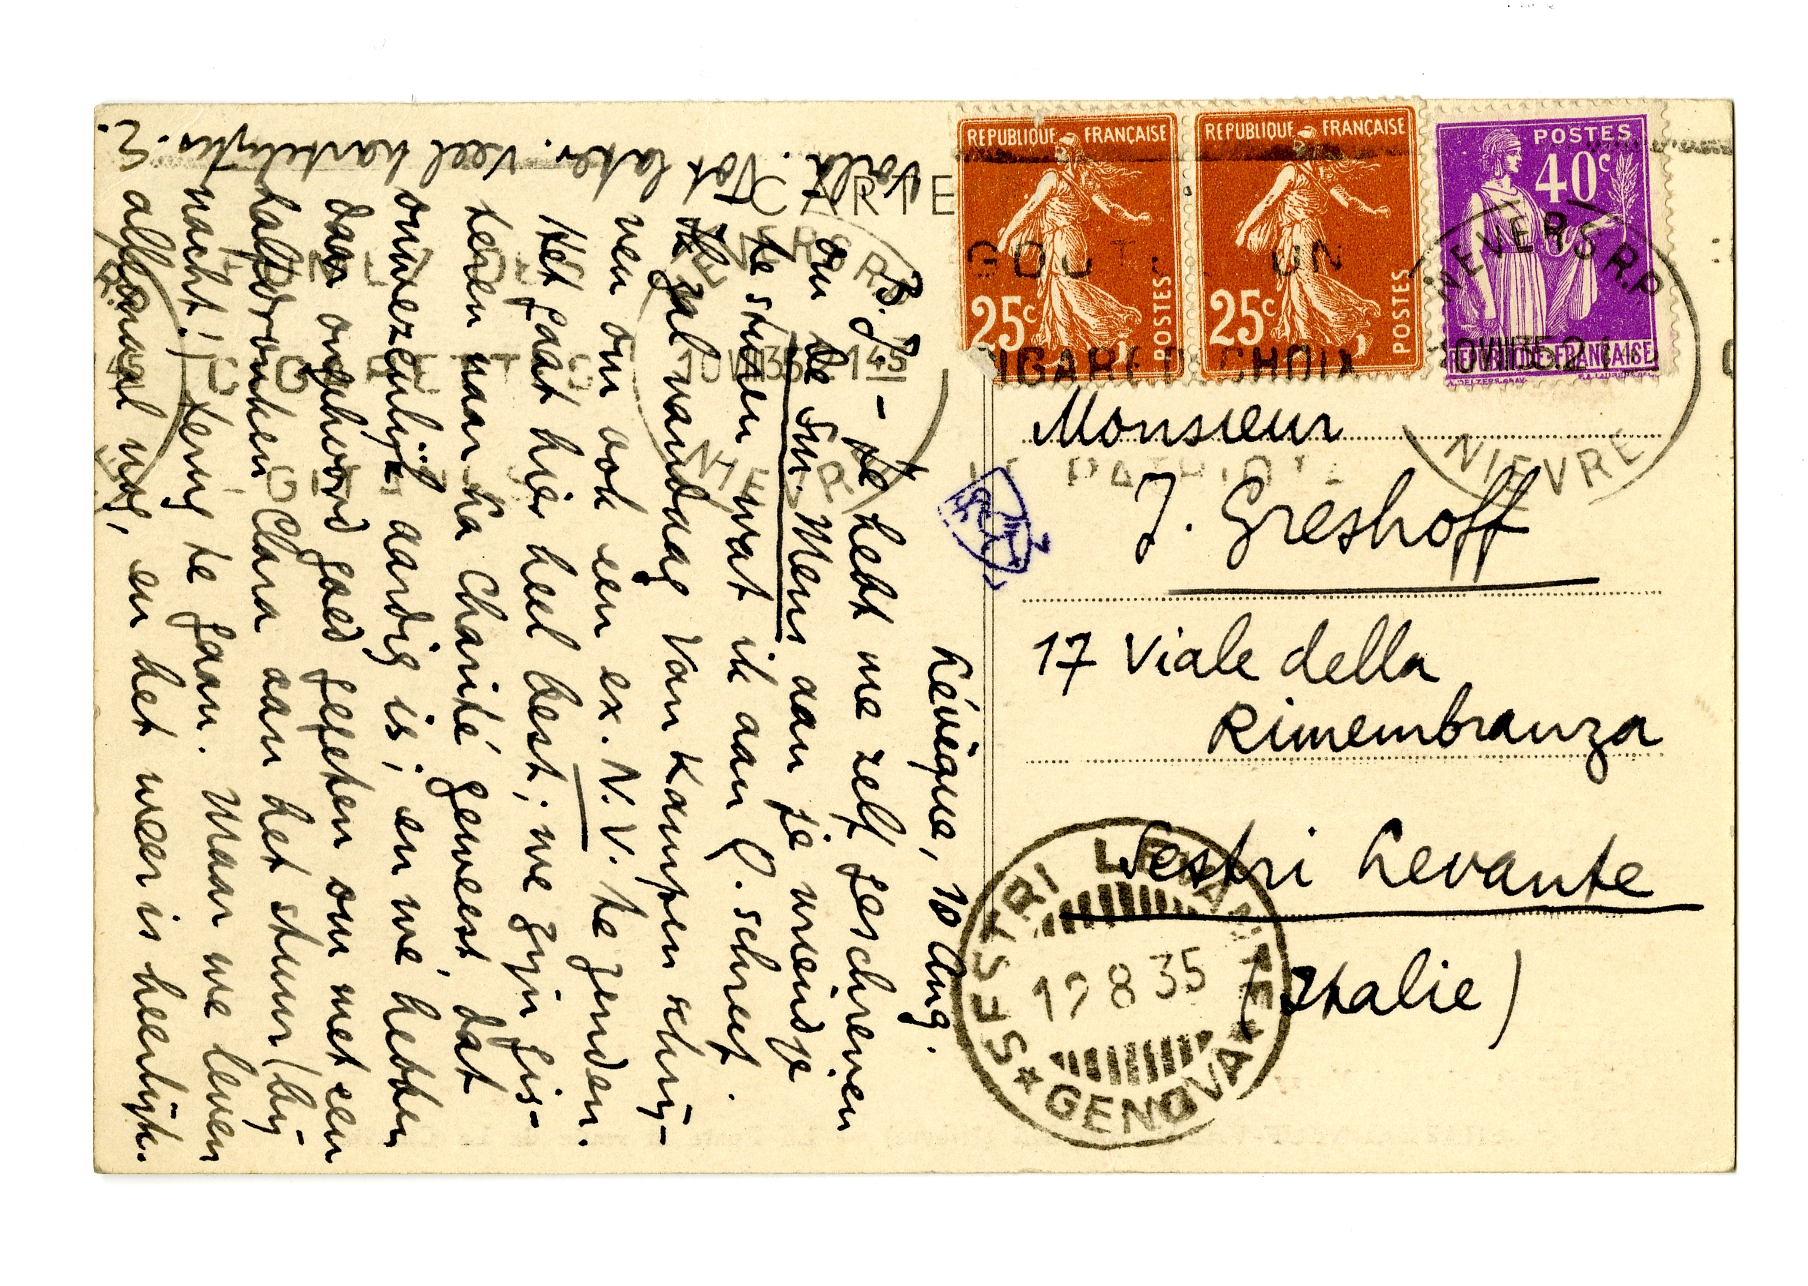 CARTE
REPUBLIQUE FRANÇAISE
25c
POSTES
REPUBLIQUE FRANÇAISE
25c
POSTES
POSTES
40c
REPUBLIQUE FRANÇAISE
NEVERS R.P.
NIEVRE
NEVERS R.P.
NIEVRE
GOUT. UN
CIGARET CHOIX
Monsieur
J. Greshoff
17 Viale della
Rimembranza
Sestri Levante
(Italie)
SESTRI LEVANTE
19 8 35
GENOVA
Lévèque, 10 Aug.
B. J. – Je hebt me zelf geschreven
om de Sm. Mens aan je vriendje
te sturen wat ik aan G. schreef.
Ik zal vandaag Van Kampen schrij-
ven om ook een ex. N.V. te zenden.
Het gaat hier heel best; we zijn gis-
teren naar La Charité geweest dat
onwezenlijk aardig is; en we hebben
daar ongehoord goed gegeten om met een
halfdronken Clara aan het stuur (bij
nacht!) terug te gaan. Maar we leven
allemaal nog, en het weer is heerlijk.
Voilà. Tot later. Veel hartelijks.
E.